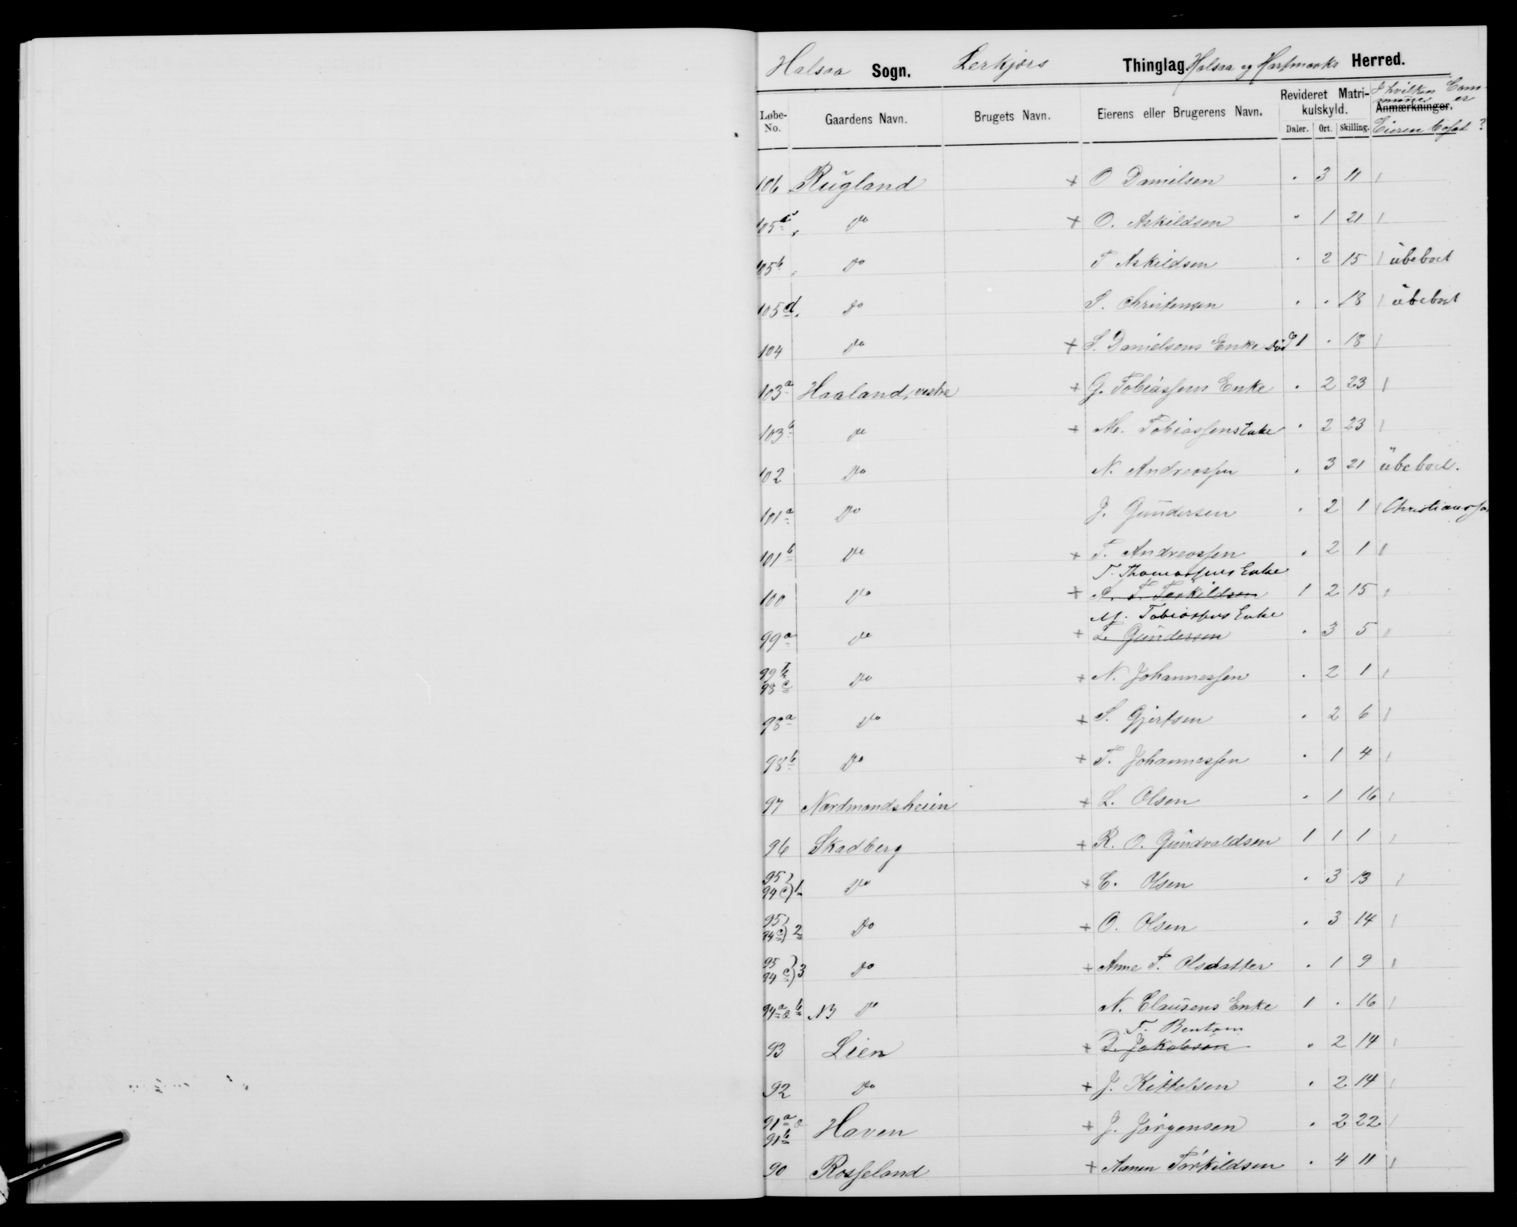 Halsaa Sogn. Lerkjærs Thinglag Halsaa og Hartmarks Herred.
Løbe-No. Gaardens Navn. Brugets Navn. Eierens eller Brugerens Navn. Revideret Matrikulskyld. Daler. Ort. Skilling. Anmærkninger. I hvilken Commune er Eieren bosat?
106 Rugland + O Danielsen " 3 11
105 a Do + O. Askildsen " 1 21
105 b Do T Askildsen " 2 15 ubeboet
105 d Do S. Christensen " " 18 ubeboet
104 Do + S. Danielsens Enke død 1 " 18
103 a Haaland, vestre + G. Tobiassens Enke " 2 23
103 b Do + M. Tobiassens Enke " 2 23
102 Do N. Andreassen " 3 21 ubeboet.
101 a Do J. Gundersen " 2 1 Christians
101 b Do + T. Andreassen " 2 1
T. Thomassens Enke
100 Do + T. Taskildsen 1 2 15
M. Tobiassens Enke
99 a Do + T. Gundersen " 3 5
99 b 98 c Do + N. Johannessen " 2 1
98 a Do + S. Gjertsen " 2 6
98 b Do + T. Johannessen " 1 4
97 Nordmandsheien + L. Olsen " 1 16
96 Skadberg + R. O. Gundvaldsen 1 1 1
95 94 c) 1 Do + C. Olsen " 3 13
95 94 c) 2 Do + O. Olsen " 3 14
95 94 c) 3 Do + Anne T. Olsdatter " 1 9
94 a & b NB Do N. Clausens Enke 1 " 16
T. Bentsen
93 Lien + B. Jakobsen " 2 14
92 Do + J. Kittelsen " 2 14
91 a & 91 b Haven + J. Jørgensen " 2 22
90 Rosseland + Aanen Torkildsen " 4 11